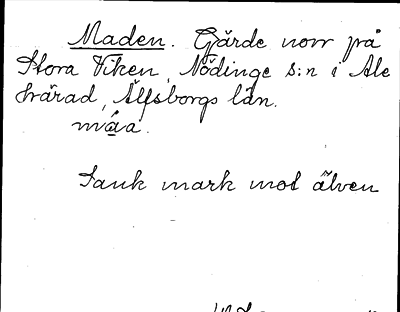 Maden. Gjärde norr på
Stora Viken, Nödinge s:n i Ale
härad, Älfsborgs län.
máa.
Sank mark mot älven